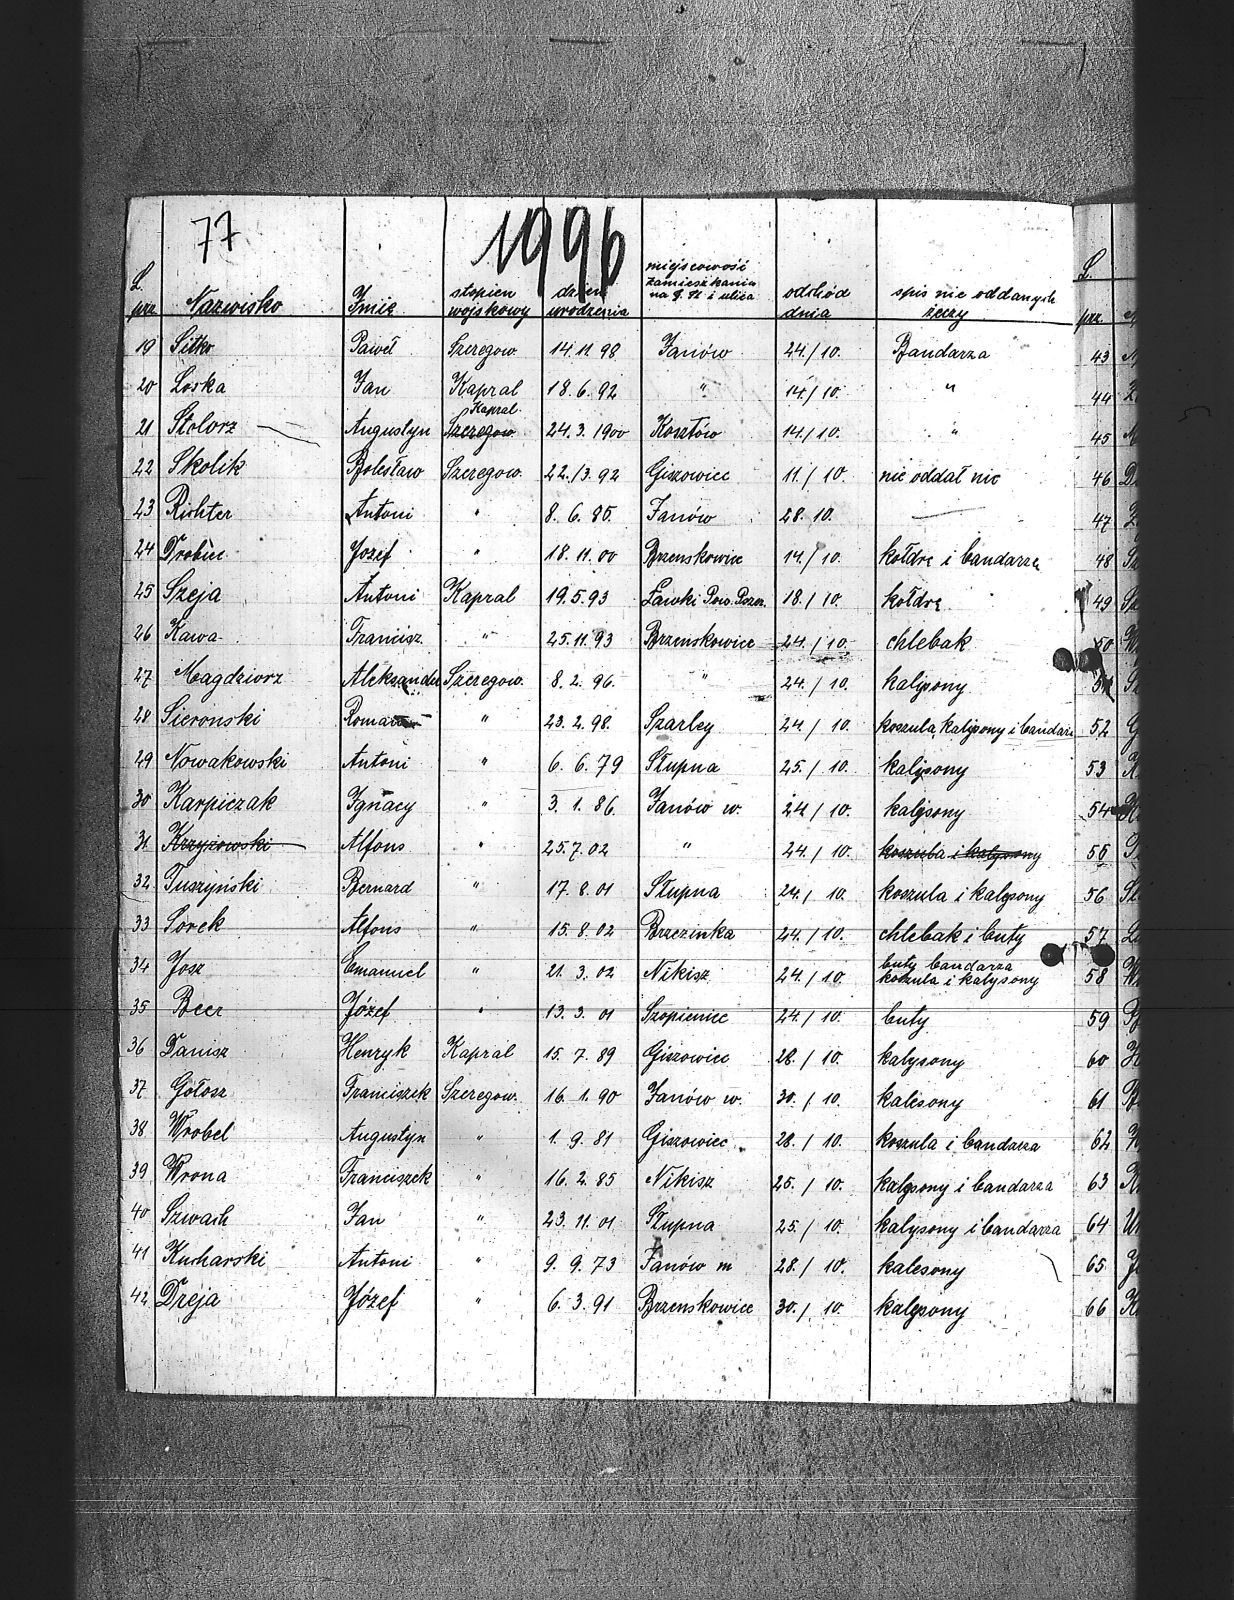 77
1996
L. prz. Nazwisko Imię stopien wojskowy dzien urodzenia miejscowość zamieszkania na G. Śl i ulica odchód dnia spis nie oddanych rzeczy L. prz.
19 Sitko Paweł Szeregow. 14.11.98 Janów 24./10. Bandarza 43
20 Loska Jan Kapral 18.6.92 " 14./10. " 44
21 Stolorz Augustyn Kapral Szeregow. 24.3.1900 Kosztów 14./10. " 45
22 Skolik Bolesław Szeregow. 22./3.92 Giszowiec 11./10. nie oddał nic 46
23 Richter Antoni " 8.6.85. Janów 28.10. — 47
24 Drobiec Jozef " 18.11.00 Brzenskowice 14./10. kołdrę i bandarzę 48
25 Szeja Antoni Kapral 19.5.93 Ławki Pow. Pszcz. 18./10. kołdrę 49
26 Kawa Francisz. " 25.11.93 Brzenskowice 24./10. chlebak 50
27 Magdziorz Aleksander Szeregow. 8.2.96. " 24./10. kalysony 51
28 Sieronski Roman " 23.2.98. Szarley 24./10. koszula, kalysony i bandarz 52
29 Nowakowski Antoni " 6.6.79 Słupna 25./10. kalysony 53
30 Karpiczak Ignacy " 3.1.86. Janów w. 24./10. kalysony 54
31 Krzyżowski Alfons " 25.7.02 " 24./10. koszula i kalysony 55
32 Tuszyński Bernard " 17.8.01 Słupna 24./10. koszula i kalysony 56
33 Sorek Alfons " 15.8.02 Brzezinka 24./10. chlebak i buty 57
34 Josz Emanuel " 21.3.02 Nikisz 24./10. buty bandarza koszula i kalysony 58
35 Beer Józef " 13.3.01 Szopieniec 24./10. buty 59
36 Danisz Henryk Kapral 15.7.89 Giszowiec 28./10. kalysony 60
37 Gołosz Franciszek Szeregow. 16.1.90 Janów w. 30./10. kalesony 61
38 Wrobel Augustyn " 1.9.81 Giszowiec 28./10. koszula i bandarza 62
39 Wrona Franciszek " 16.2.85 Nikisz 25./10. kalysony i bandarza 63
40 Szwach Jan " 23.11.01 Słupna 25./10. kalysony i bandarza 64
41 Kucharski Antoni " 9.9.73 Janów m 28./10. kalesony 65
42 Dreja Józef " 6.3.91 Brzenskowice 30./10. kalysony 66